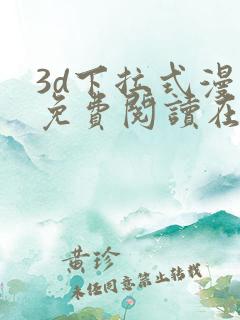 3d下拉式漫
免費閱讀在
黄珍
未经同意禁止转载